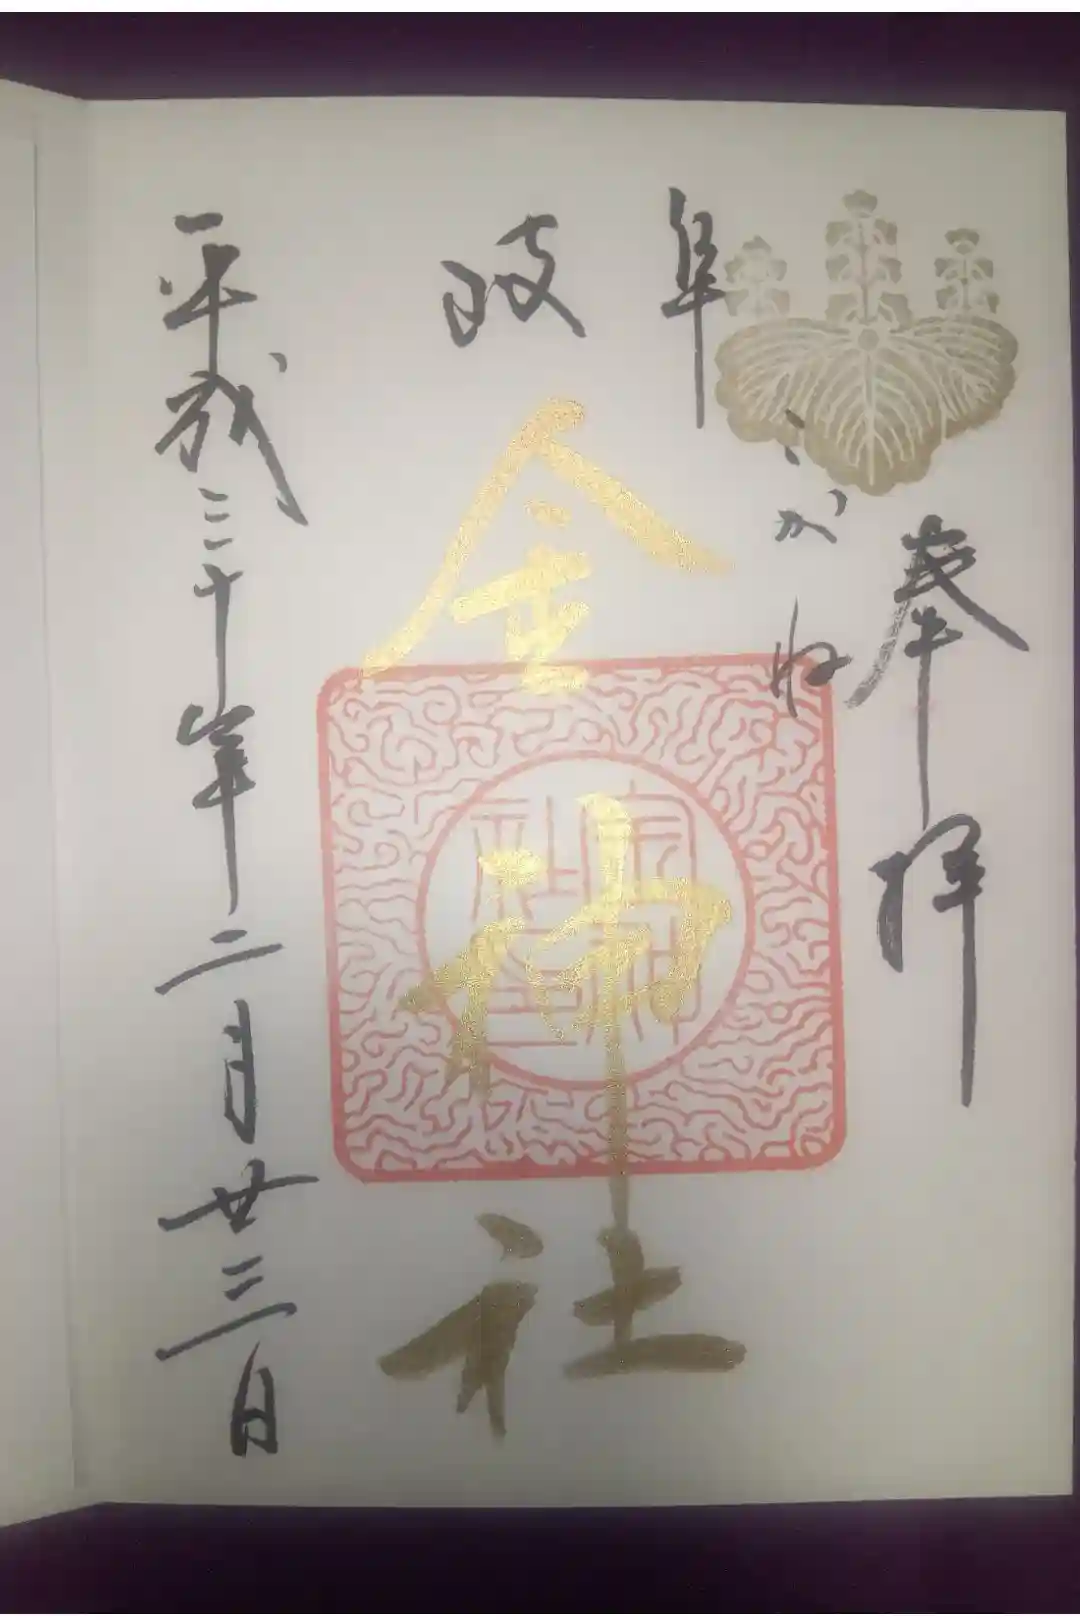 奉拝
岐阜
こがね
金神社
平成三十年二月廿三日